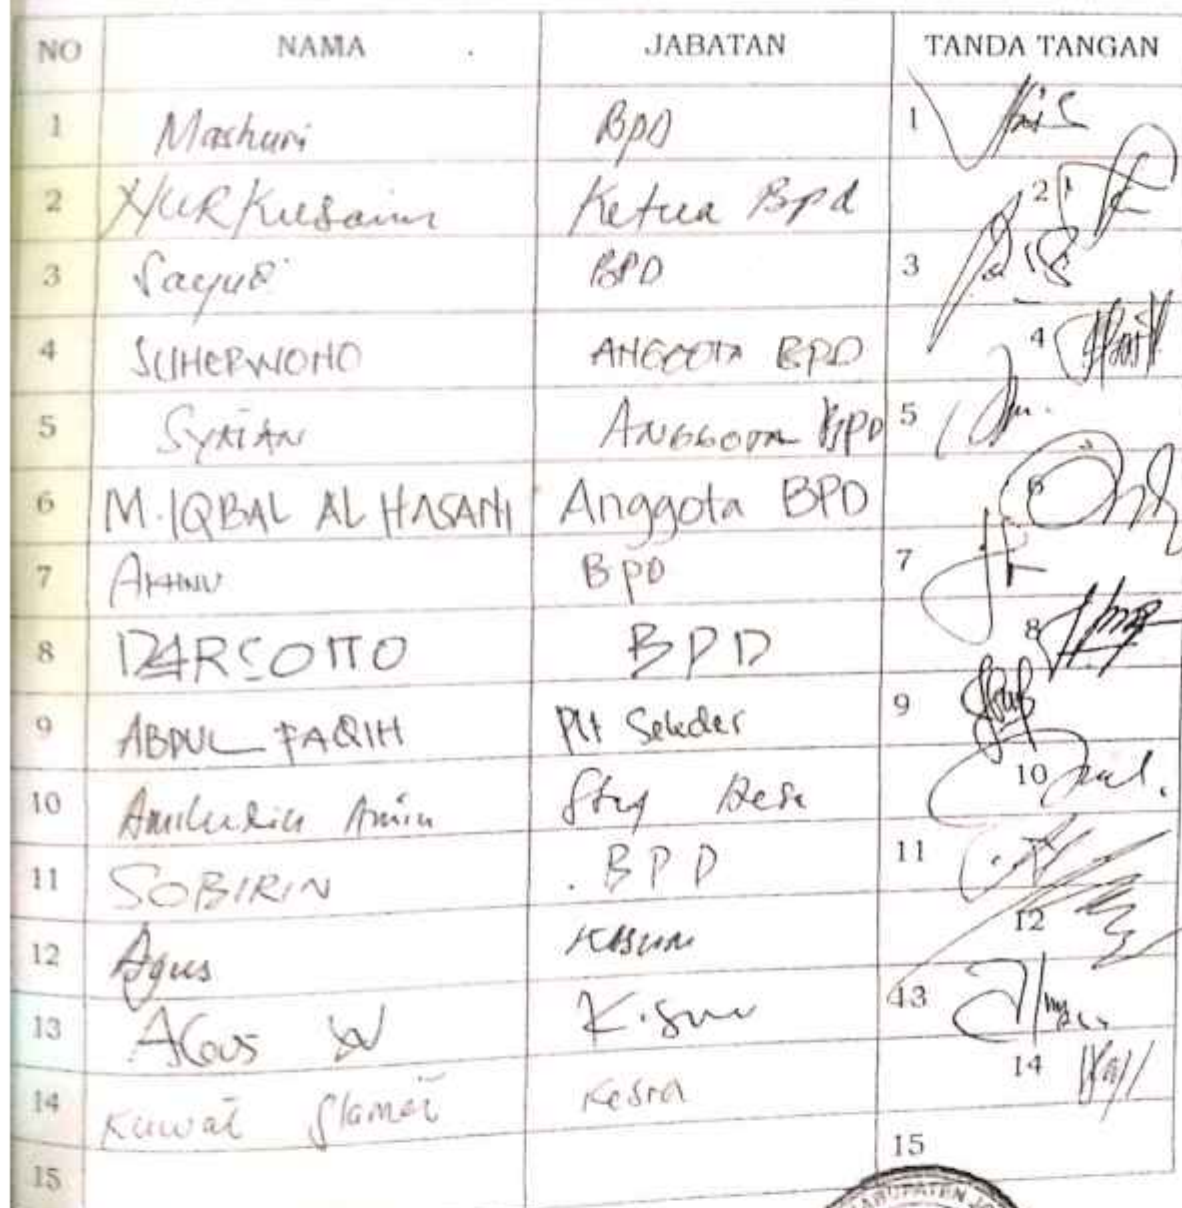 NO NAMA JABATAN TANDA TANGAN
1 Mashuri BPD 1
2 NUR Kusaini Ketua Bpd 2
3 Sayudi BPD 3
4 SUHERWONO ANGGOTA BPD 4
5 SYAIAN ANGGOTA BPD 5
6 M. IQBAL AL HASANI Anggota BPD 6
7 BPD 7
8 DARSONO BPD 8
9 ABDUL FAQIH Plt Sekdes 9
10 Amin Staf Desa 10
11 SOBIRIN BPD 11
12 Agus 12
13 AGUS W 13
14 Kuwat Slamet Kesra 14
15 15
KABUPATEN